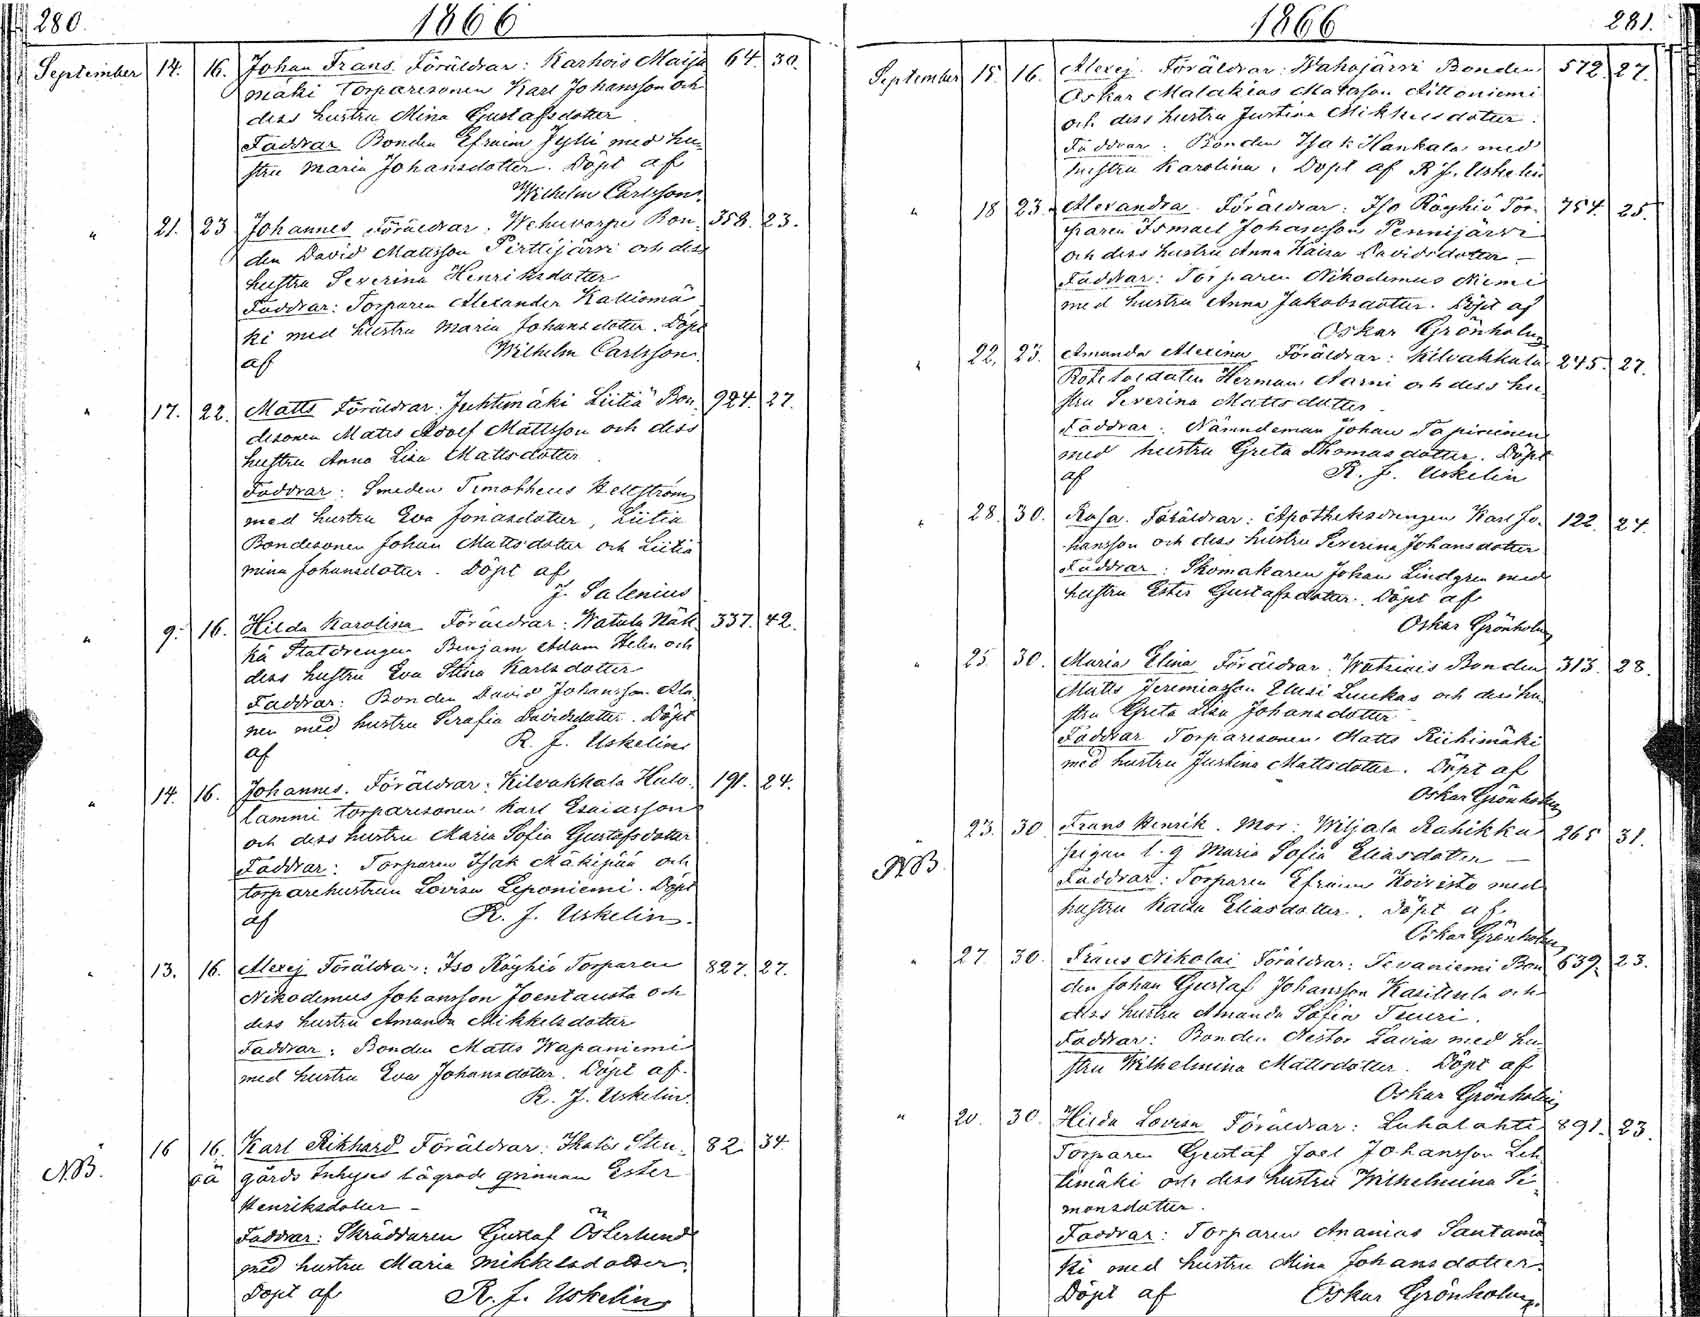 280. 1866
September 14. 16. Johan Frans. Föräldrar: Karhois Maija 64. 30.
mäki torparesonen Karl Johansson och
dess hustru Mina Gustafsdotter
Faddrar Bonden Efraim Jylli med hu-
stru Maria Johansdotter. Döpt af
Wilhelm Carlsson.
" 21. 23 Johannes Föräldrar: Wehuvarpe Bon- 358. 23.
den David Mattsson Pirttijärvi och dess
hustru Severina Henriksdotter
Faddrar: Torparen Alexander Kalliomä
ki med hustru Maria Johansdotter. Döpt
af Wilhelm Carlsson.
" 17. 22. Matts Föräldrar: Juhtimäki Liitiä Bon- 924. 27.
desonen Matts Adolf Mattsson och dess
hustru Anna Lisa Mattsdotter.
Faddrar: Smeden Timotheus Hellström
med hustru Eva Jonasdotter, Liitiä
Bondesonen Johan Mattsdotter och Liitiä
Mina Johansdotter. Döpt af
J. Salenius
" 9. 16. Hilda Karolina Föräldrar: Watula Näk 337. 42.
kä Statdrengen Benjam Adam Helin och
dess hustru Eva Stina Karlsdotter
Faddrar: Bonden David Johansson Ala
nen med hustru Serafia Davidsdotter. Döpt
af R. J. Uskelin
" 14. 16. Johannes. Föräldrar: Kilvakkala Hulo- 191. 24.
lammi torparesonen Karl Esaiasson
och dess hustru Maria Sofia Gustafsdotter
Faddrar: Torparen Isak Mäkipää och
torparehustrun Lovisa Leponiemi. Döpt
af R. J. Uskelin.
" 13. 16. Alexej Föräldrar: Iso Röyhiö Torparen 827. 27.
Nikodemus Johansson Joentausta och
dess hustru Amanda Mikkelsdotter
Faddrar: Bonden Matts Wapaniemi
med hustru Eva Johansdotter. Döpt af
R. J. Uskelin.
" 16 16. Karl Rikhard Föräldrar: Ikalis Sten- 82. 34.
NB. oä gårds Inhyses lägrade qvinnan Ester
Henriksdotter -
Faddrar: Skräddaren Gustaf Österlund
med hustru Maria Mikkelsdotter.
Döpt af R. J. Uskelin
1866 281.
September 15. 16. Alexej. Föräldrar: Wahojärvi Bonden 572. 27.
Oskar Malakias Matsson Aittoniemi
och dess hustru Justina Mikkelsdotter.
Faddrar: Bonden Isak Hankala med
hustru Karolina. Döpt af R J. Uskelin
" 18 23. Alexandra. Föräldrar: Iso Röyhiö Tor- 754. 25.
paren Ismael Johansson Pennijärvi
och dess hustru Anna Kaisa Davidsdotter -
Faddrar: Torparen Nikodemus Niemi
med hustru Anna Jakobsdotter. Döpt af
Oskar Grönholm
" 22. 23. Amanda Alexina Föräldrar: Kilvakkala 245. 27.
Rotesoldaten Herman Aarni och dess hu-
stru Severina Mattsdotter.
Faddrar: Nämndeman Johan Tapininen
med hustru Greta Thomasdotter. Döpt
af R. J. Uskelin
" 28. 30. Rosa. Föräldrar: Apotheksdrengen Karl Jo- 122. 24.
hansson och dess hustru Severina Johansdotter
Faddrar: Skomakaren Johan Lindgren med
hustru Ester Gustafsdotter. Döpt af
Oskar Grönholm
" 25. 30. Maria Elina Föräldrar: Watsiais Bonden 313. 28.
Matts Jeremiasson Elusi Luukas och dess hu-
stru Greta Lisa Johansdotter -
Faddrar Torparesonen Matts Riihimäki
med hustru Justina Mattsdotter. Döpt af
Oskar Grönholm
" 23. 30 Frans Henrik. Mor: Wiljala Rahikka 265 31.
NB. pigan l. q Maria Sofia Eliasdotter -
Faddrar: Torparen Efraim Koivisto med
hustru Kaisa Eliasdotter. Döpt af
Oskar Grönholm
" 27. 30. Frans Nikolai Föräldrar: Tevaniemi Bon 639. 23.
den Johan Gustaf Johansson Kasitula och
dess hustru Amanda Sofia Teuri.
Faddrar: Bonden Nestor Lavia med hu-
stru Wilhelmina Mattsdotter. Döpt af
Oskar Grönholm
" 20. 30. Hilda Lovisa Föräldrar: Luhalahti 891. 23.
Torparen Gustaf Joel Johansson Leh
timäki och dess hustru Wilhelmina Si-
monsdotter.
Faddrar: Torparen Ananias Santamä
ki med hustru Mina Johansdotter.
Döpt af Oskar Grönholm.